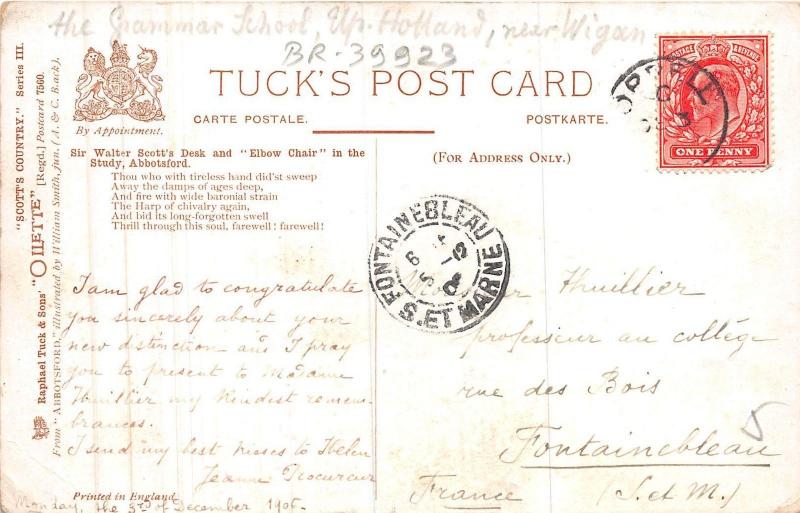 the Grammar School, Up-Holland, near Wigan
BR-39923
TUCK'S POST CARD
CARTE POSTALE.
POSTKARTE.
By Appointment.
(FOR ADDRESS ONLY.)
"SCOTT'S COUNTRY." Series III.
Raphael Tuck & Sons' "OILETTE" [Regd.] Postcard 7560.
From "ABBOTSFORD," illustrated by William Smith, jun. (A. & C. Black).
Sir Walter Scott's Desk and "Elbow Chair" in the
Study, Abbotsford.
Thou who with tireless hand did'st sweep
Away the damps of ages deep,
And fire with wide baronial strain
The Harp of chivalry again,
And bid its long-forgotten swell
Thrill through this soul, farewell! farewell!
POSTAGE REVENUE
ONE PENNY
ORRELL
FONTAINEBLEAU
S. ET MARNE
I am glad to congratulate
you sincerely about your
new distinction and I pray
you to present to Madame
Thuillier my kindest remem-
brances.
I send my best kisses to Helen
Jeanne
Monday, the 3rd of December 1906.
Printed in England
Thuillier
professeur au collège
rue des Bois
Fontainebleau
France (S. et M.)